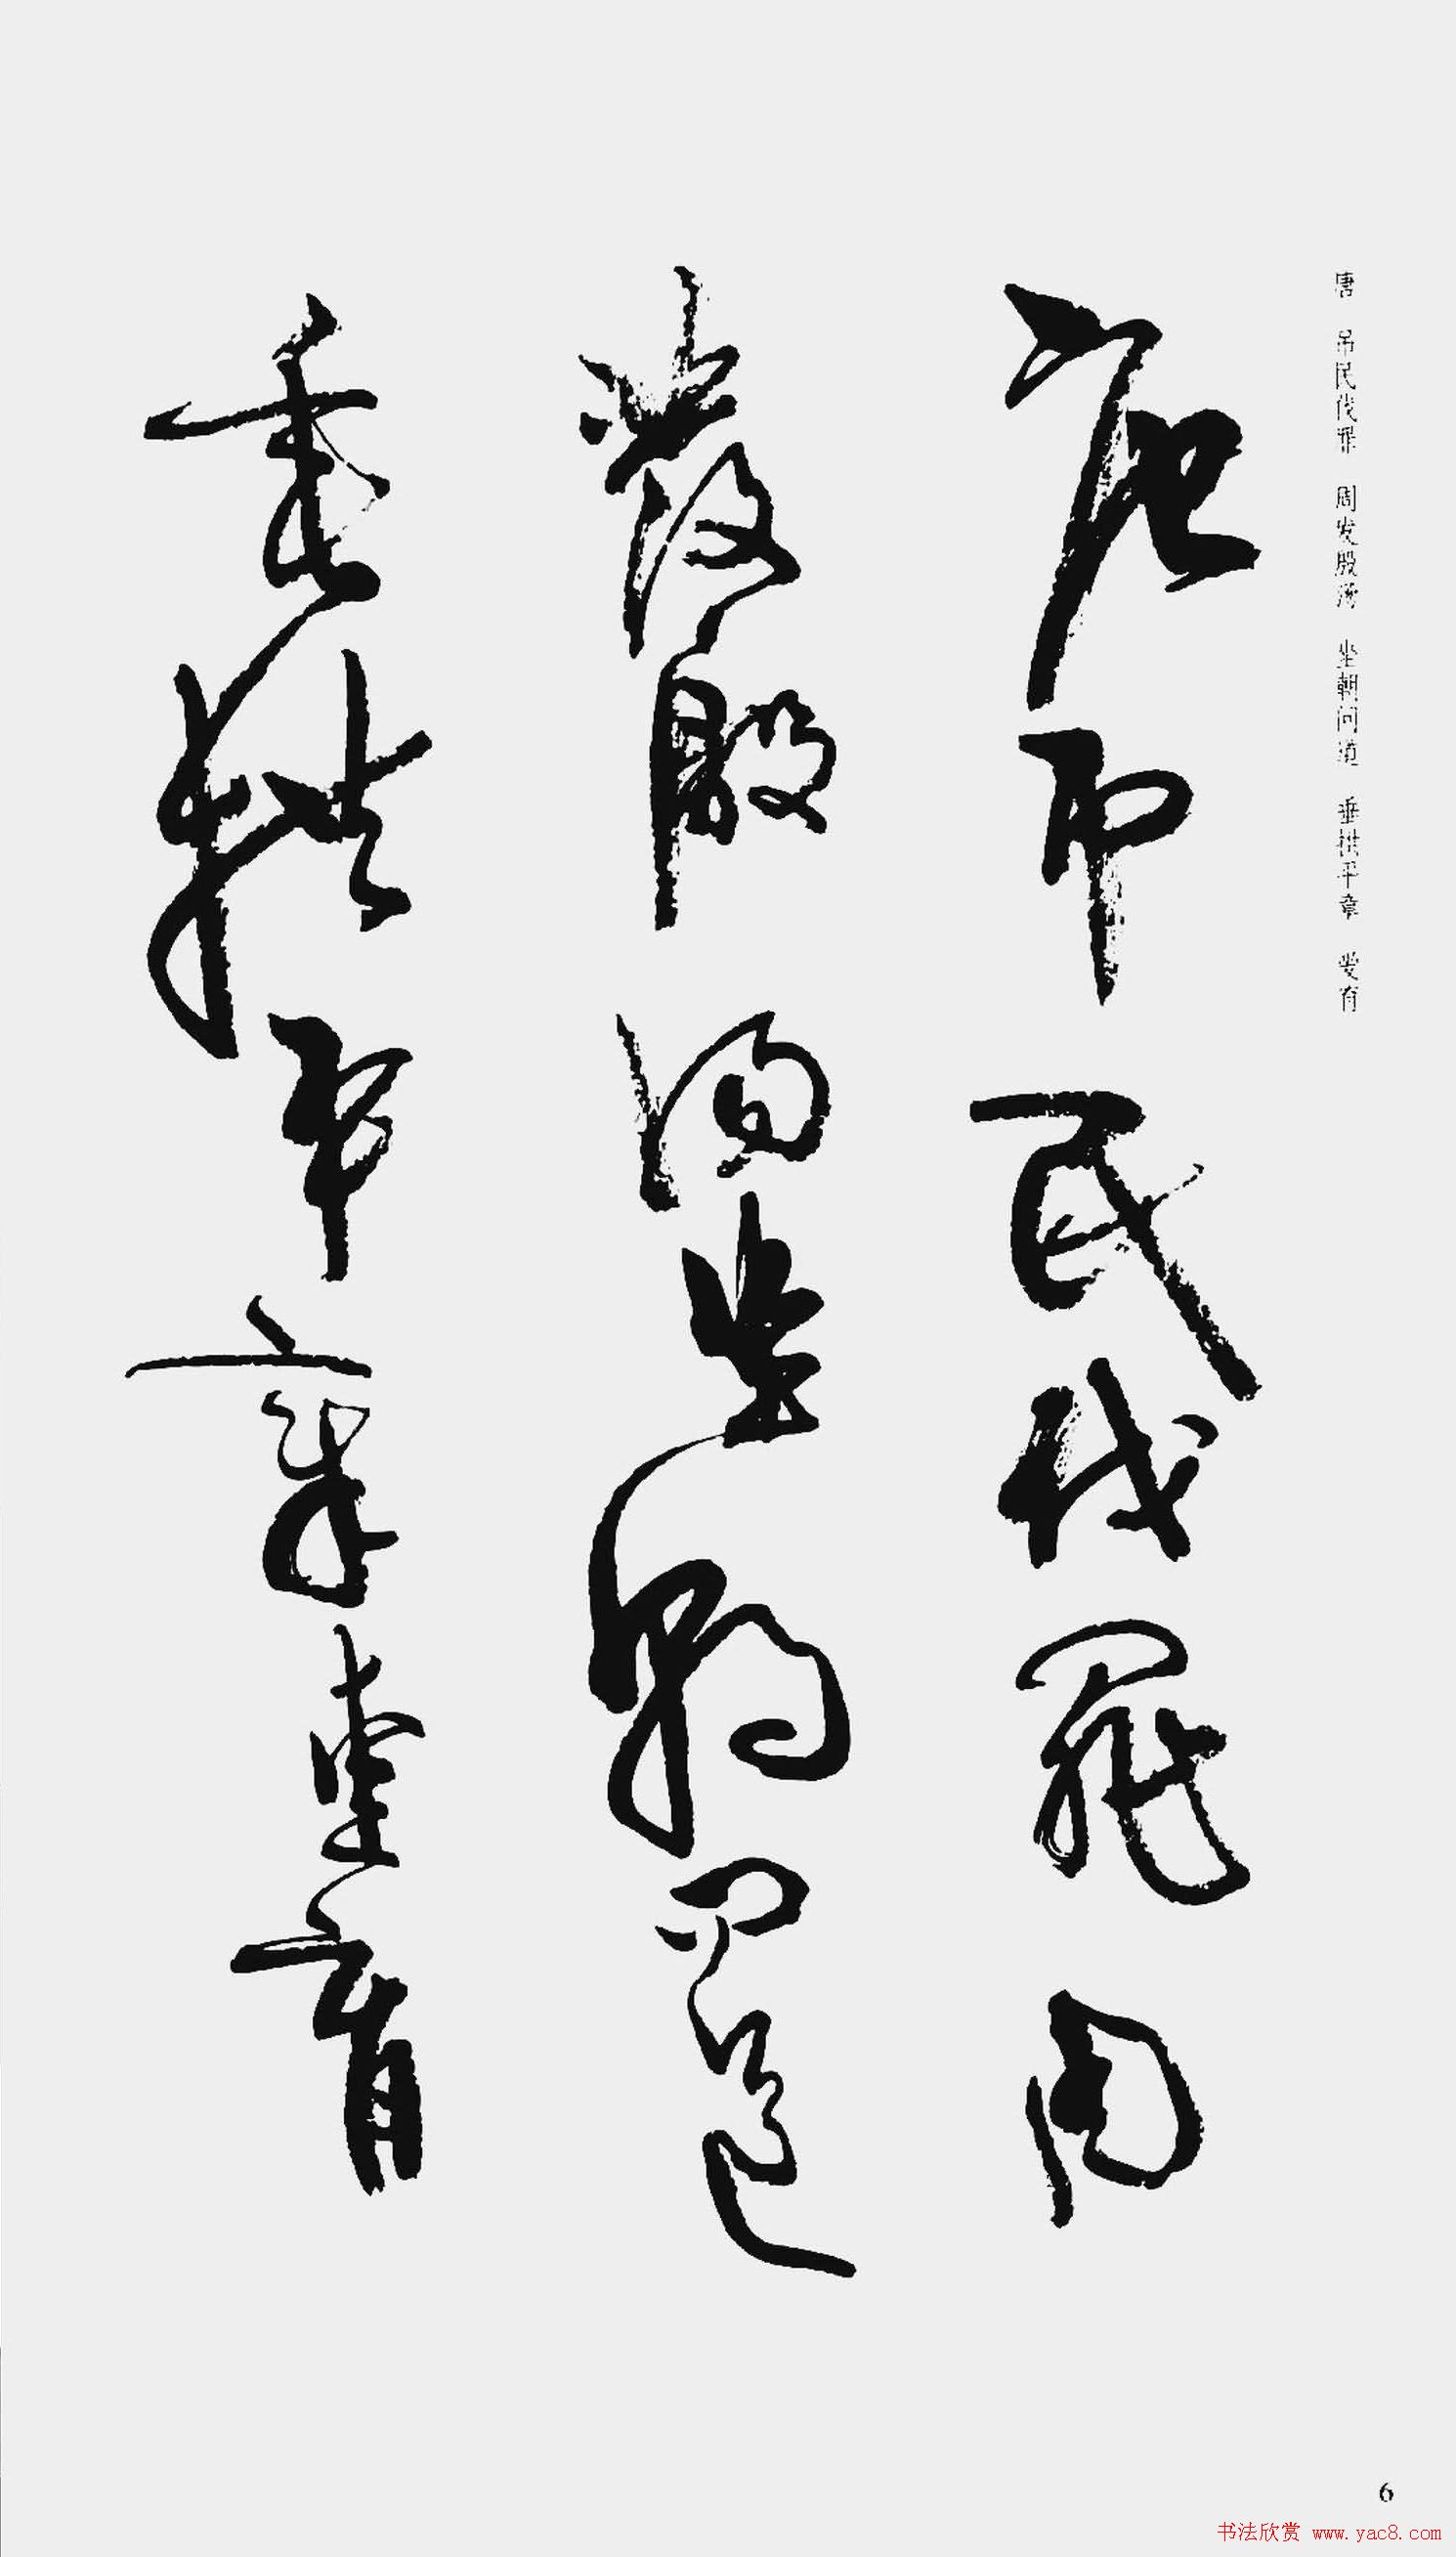 唐 吊民伐罪 周发殷汤 坐朝问道 垂拱平章 爱育
唐吊民伐罪周
發殷湯坐朝问道
垂拱平章爱育
6
书法欣赏 www.yac8.com